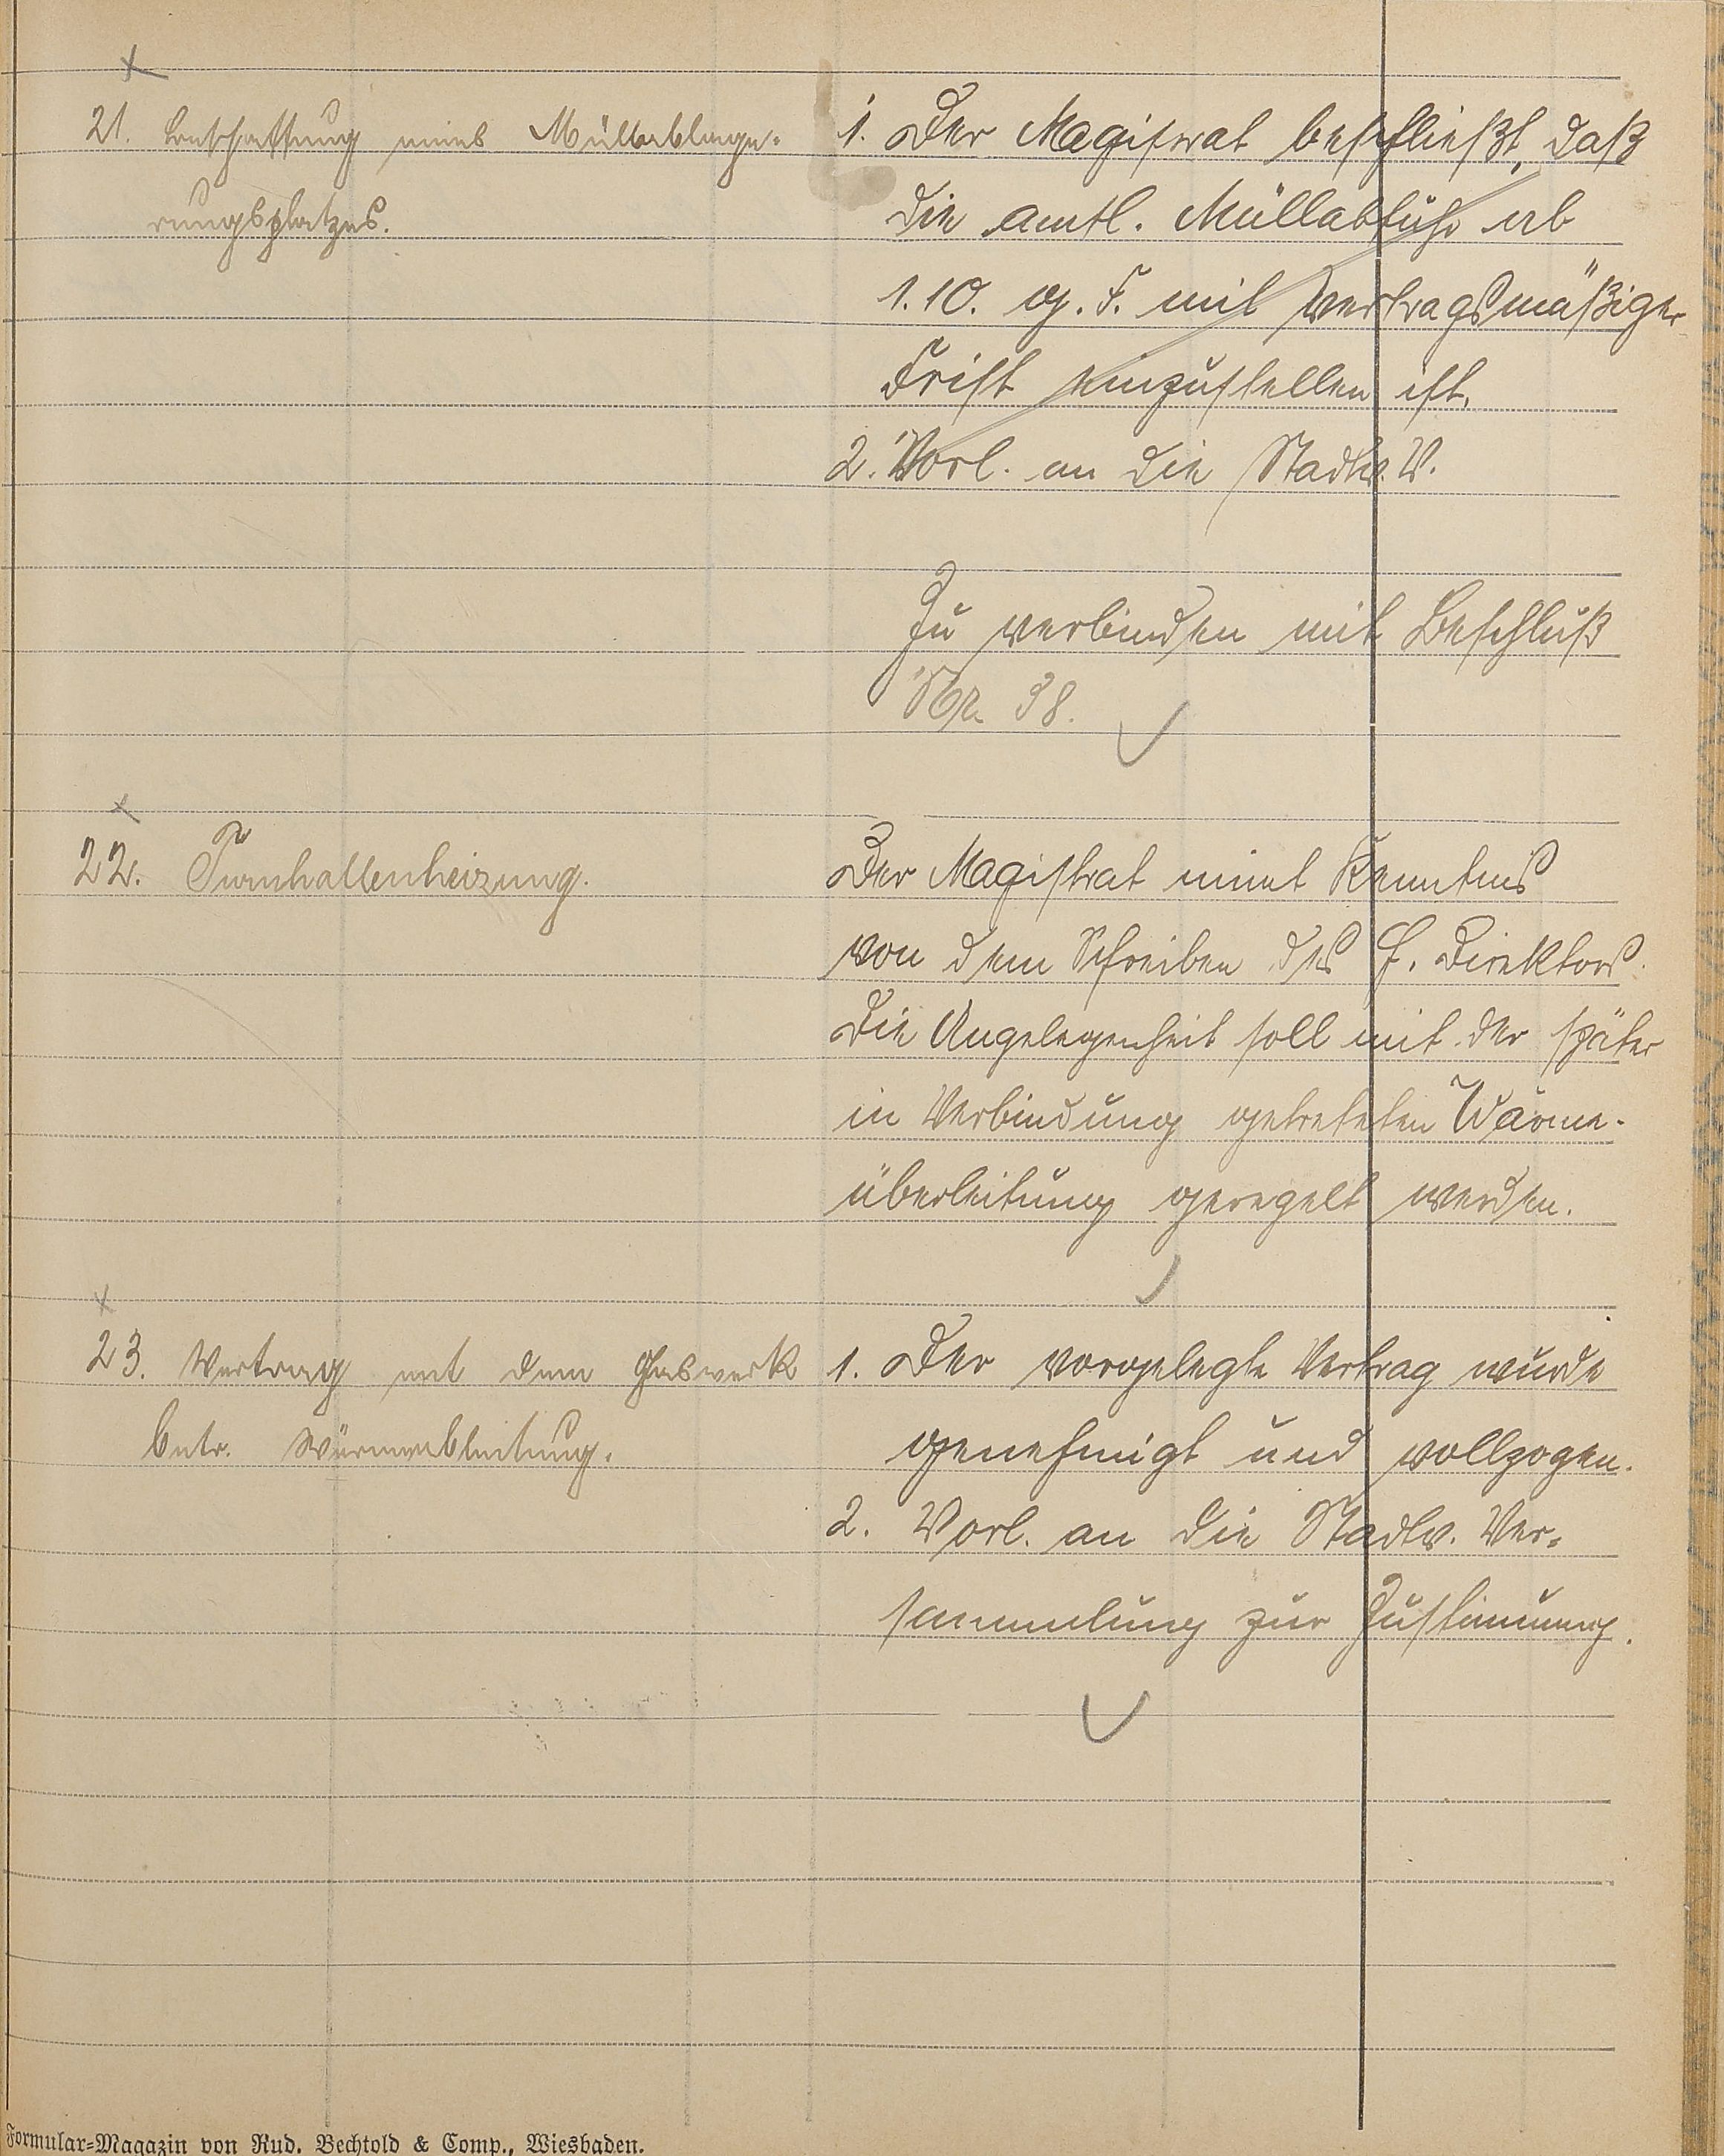 21. Beschaffung eines Müllablage-
rungsplatzes.
1. Der Magistrat beschließt, daß
die amtl. Müllabfuhr ab
1.10. g. F. mit vertragsmäßiger
Frist einzustellen ist.
2. Vorl. an die Stadtv. V.
Zu verbinden mit Beschluß
Nr. 38.
22. Turnhallenheizung.
Der Magistrat nimt Kenntnis
von dem Schreiben des Direktors.
Die Angelegenheit soll mit der später
in Verbindung Wärme-
überleitung geregelt werden.
23. Vertrag mit dem Gaswerk
betr. Wärmeableitung.
1. Der vorgelegte Vertrag wurde
genehmigt und vollzogen.
2. Vorl. an die Stadtv. Ver-
sammlung zur Zustimmung.
Formular-Magazin von Rud. Bechtold & Comp., Wiesbaden.